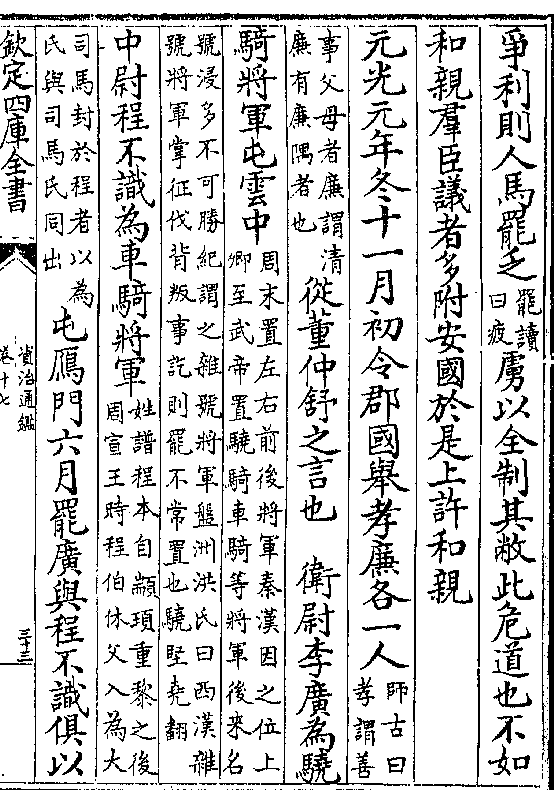 爭利則人馬罷乏罷讀曰疲虜以全制其敝此危道也不如
和親羣臣議者多附安國於是上許和親
元光元年冬十一月初令郡國舉孝廉各一人師古曰孝謂善
事父母者廉謂清廉有廉隅者也從董仲舒之言也 衛尉李廣為驍
騎將軍屯雲中周末置左右前後將軍秦漢因之位上卿至武帝置驍騎車騎等將軍後來名
號浸多不可勝紀謂之雜號將軍盤洲洪氏曰西漢雜號將軍掌征伐背叛事訖則罷不常置也驍堅堯翻
中尉程不識為車騎將軍姓譜程本自顓頊重黎之後周宣王時程伯休父入為大
司馬封於程者以為氏與司馬氏同出屯鴈門六月罷廣與程不識俱以
欽定四庫全書
資治通鑑
卷十七
三十三